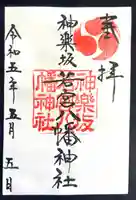 奉拝
神楽坂若宮八幡神社
神楽坂
若宮八
幡神社
令和五年五月五日